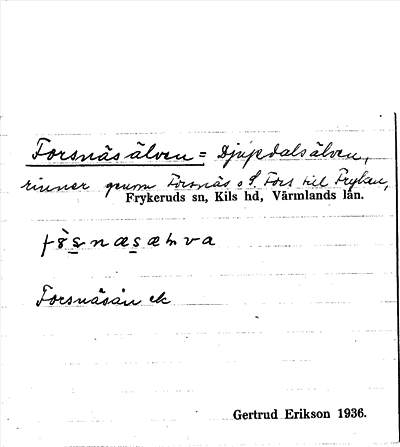 Forsnäsälven = Djúpdalsälven,
rinner genom Forsnäs o. S. Fors till Fryken,
Frykeruds sn, Kils hd, Värmlands län.
Forsnäsån ek
Gertrud Erikson 1936.